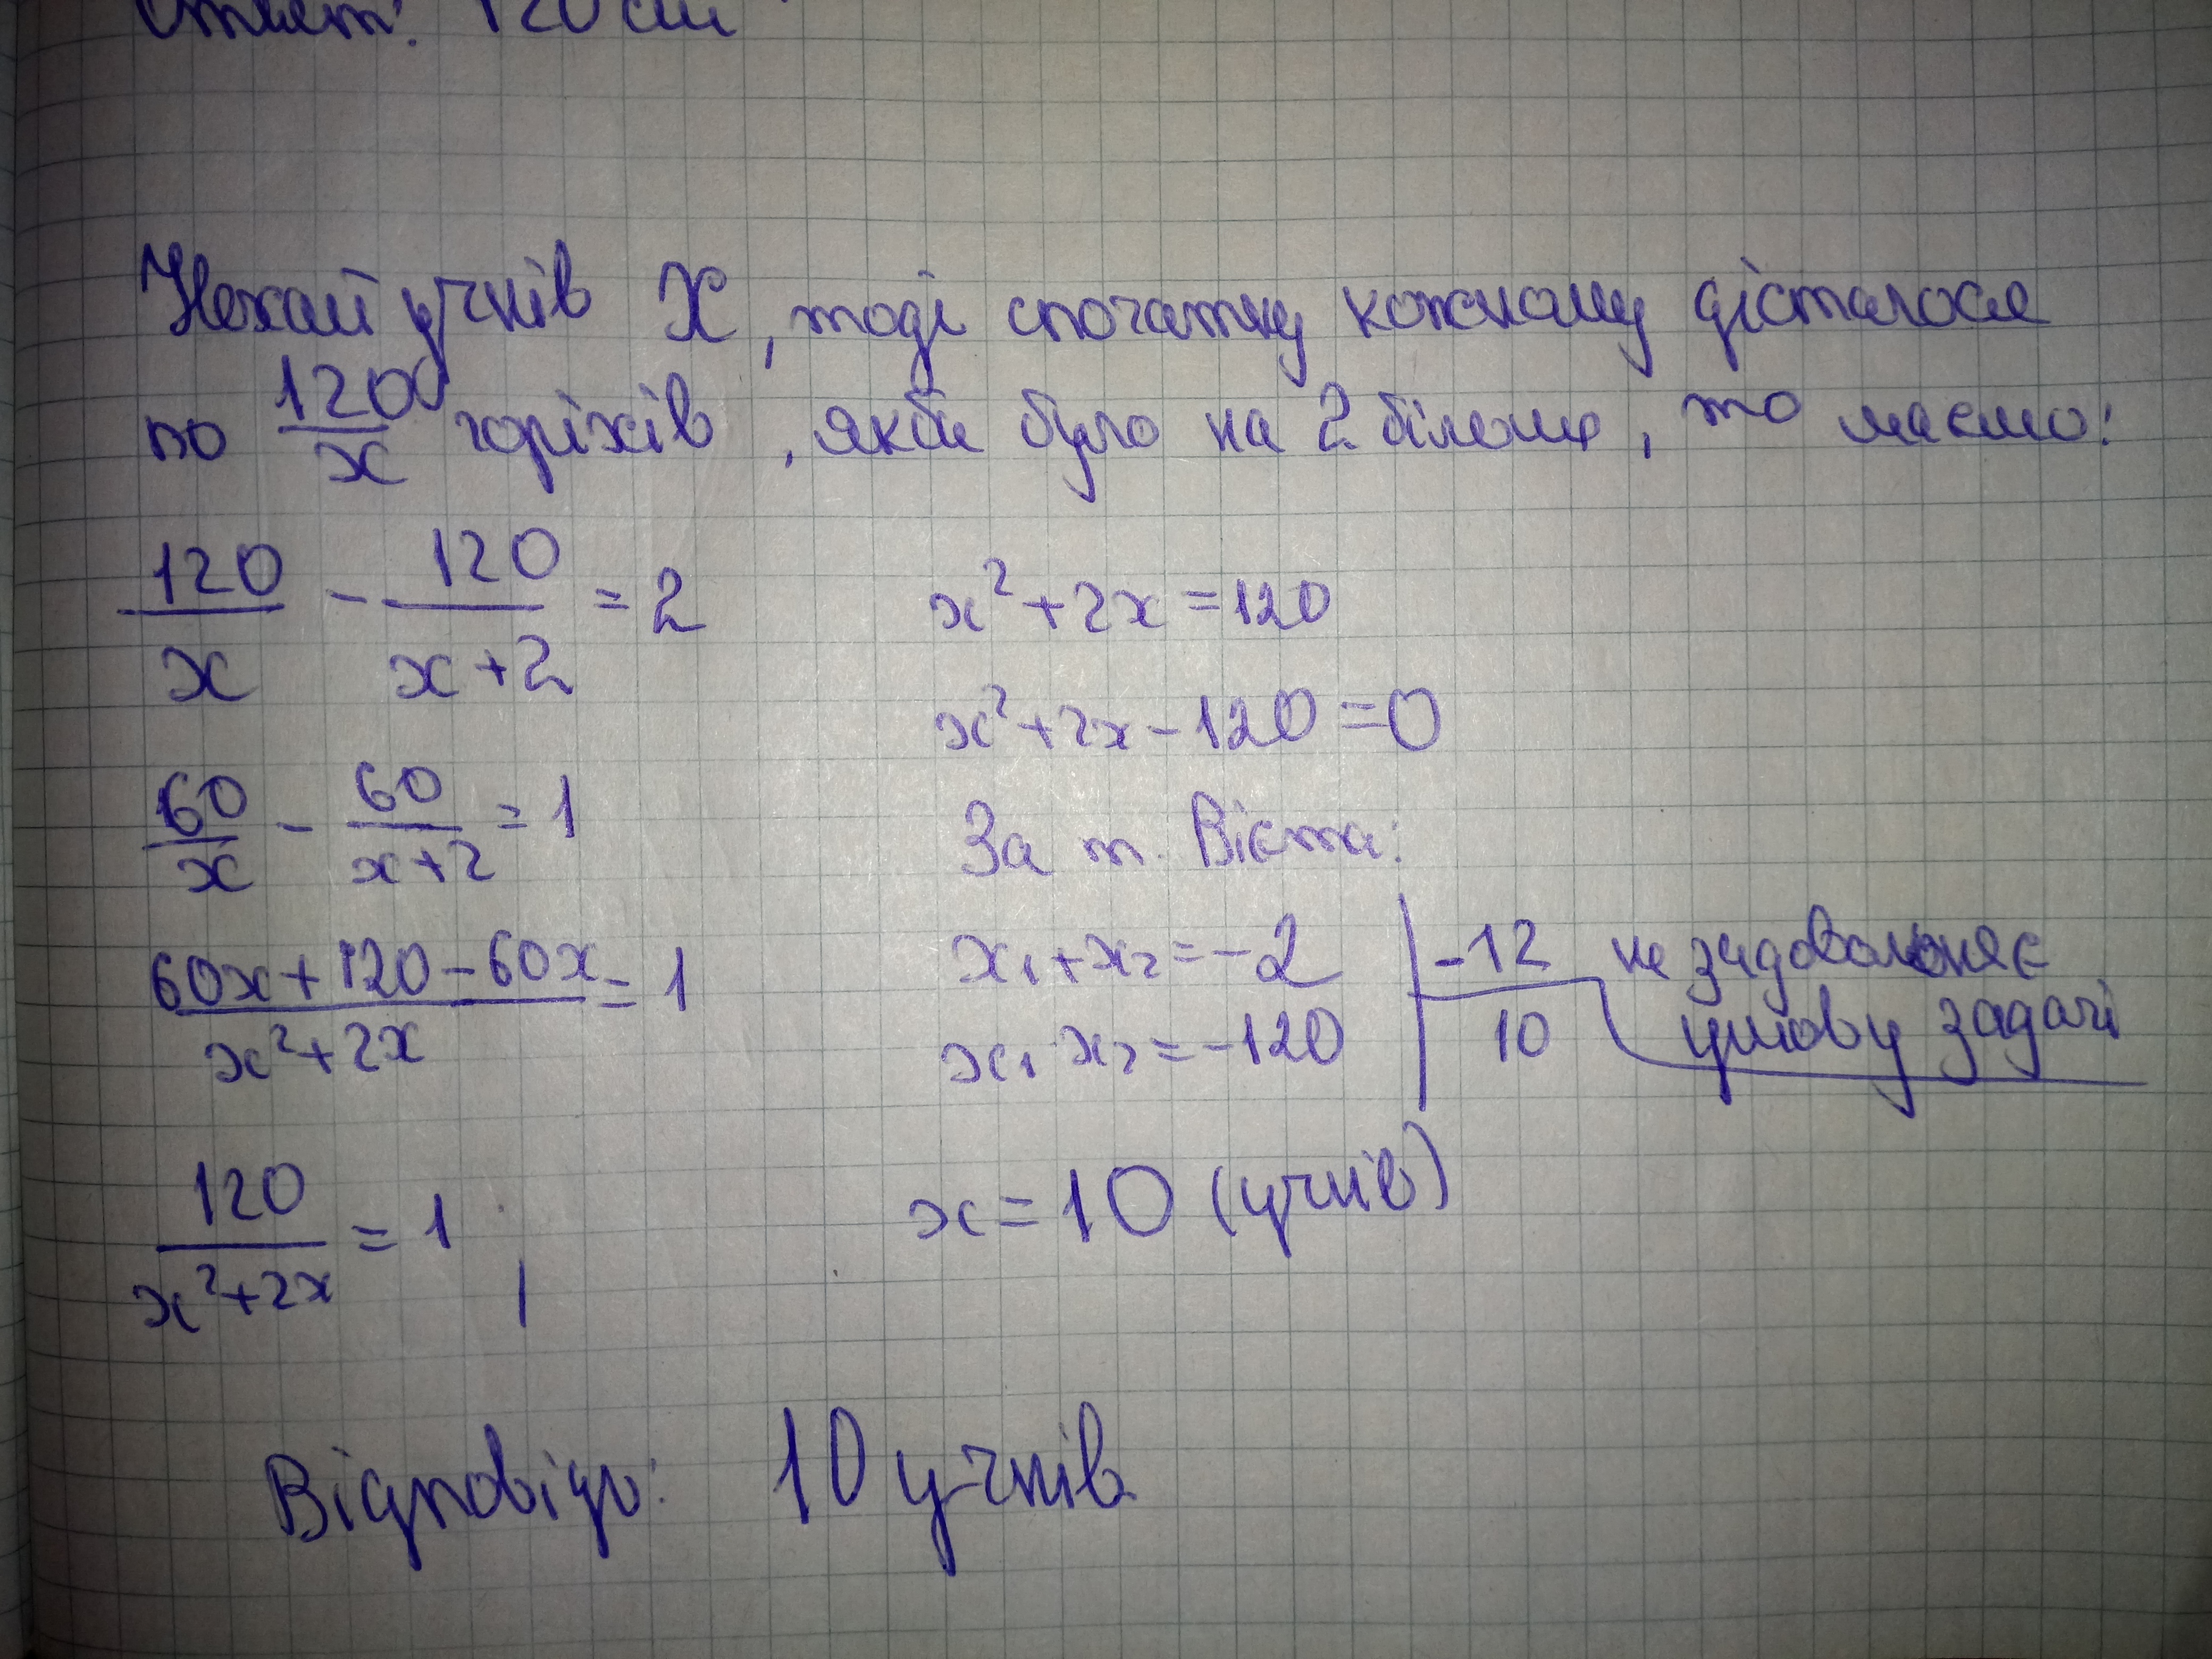 Ответ: 120 см
Нехай учнів X, тоді спочатку кожному дісталося
по 120/x горіхів, якби було на 2 більше, то маємо:
120/x - 120/(x+2) = 2
60/x - 60/(x+2) = 1
(60x+120-60x)/(x²+2x) = 1
120/(x²+2x) = 1
x²+2x=120
x²+2x-120=0
За т. Вієта:
x₁+x₂=-2 | -12 не задовольняє
x₁·x₂=-120 | 10 умову задачі
x=10 (учнів)
Відповідь: 10 учнів